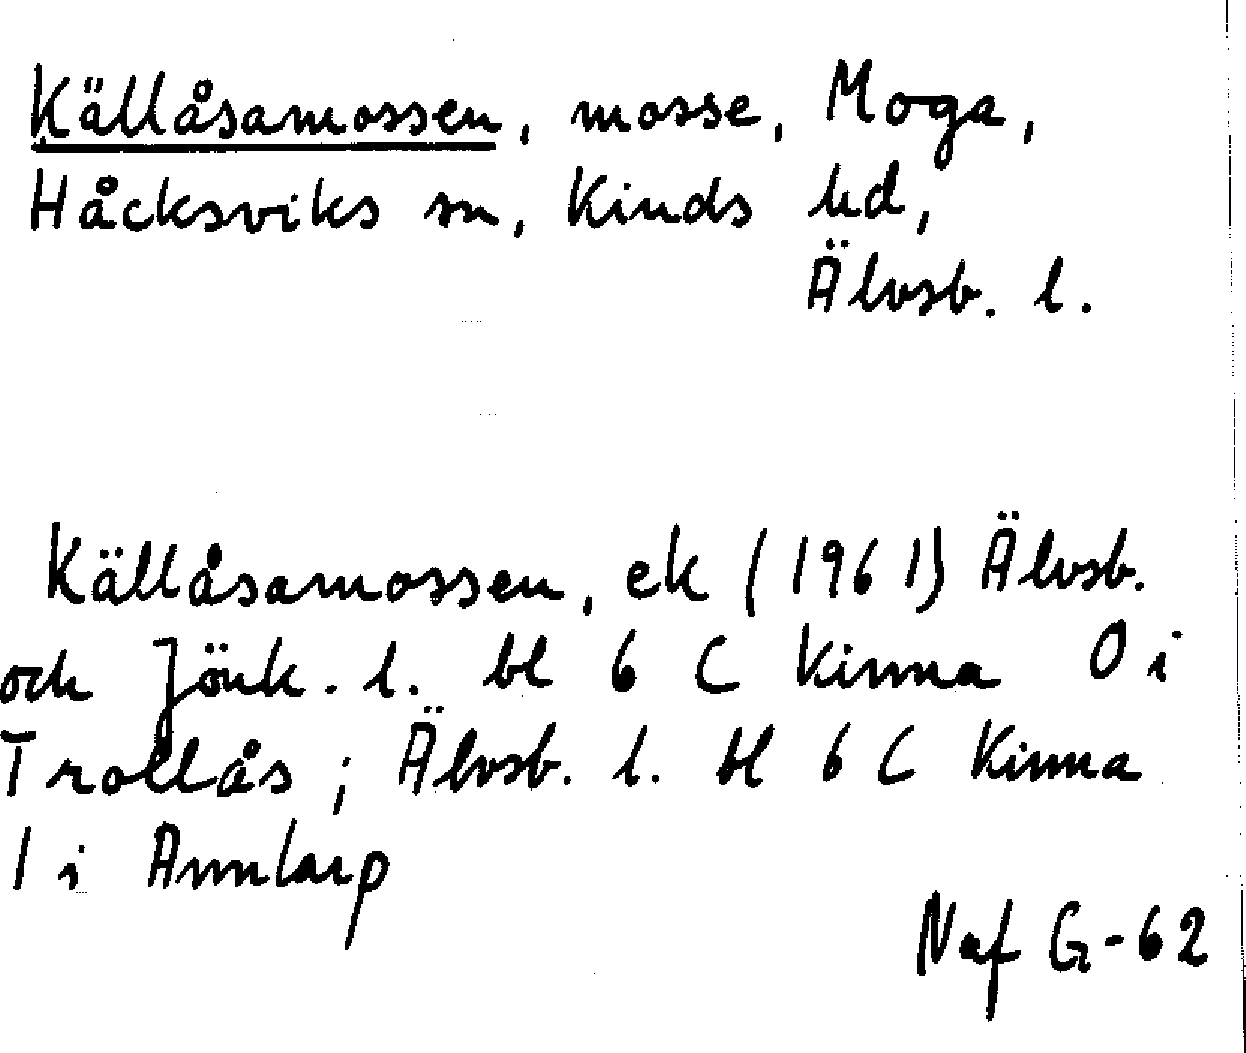 Källåsamossen, mosse, Moga,
Håcksviks sn, Kinds hd,
Älvsb. l.
Källåsamossen, ek (1961) Älvsb.
och Jönk. l. bl 6 C Kinna 0 i
Trollås; Älvsb. l. bl 6 C Kinna
1 i Annlarp
Naf G-62